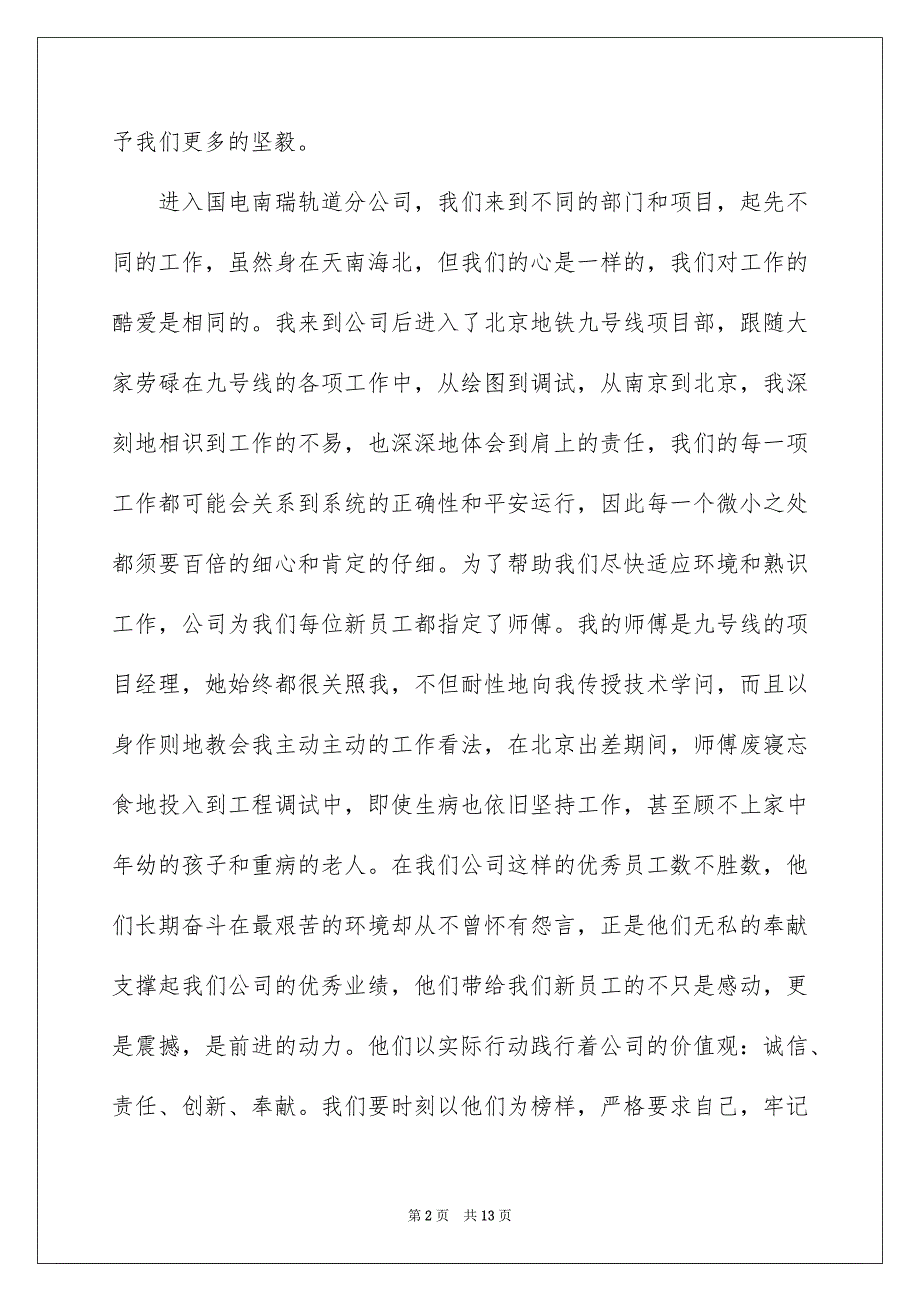 予我们更多的坚毅。
进入国电南瑞轨道分公司，我们来到不同的部门和项目，起先不
同的工作，虽然身在天南海北，但我们的心是一样的，我们对工作的
酷爱是相同的。我来到公司后进入了北京地铁九号线项目部，跟随大
家劳碌在九号线的各项工作中，从绘图到调试，从南京到北京，我深
刻地相识到工作的不易，也深深地体会到肩上的责任，我们的每一项
工作都可能会关系到系统的正确性和平安运行，因此每一个微小之处
都须要百倍的细心和肯定的仔细。为了帮助我们尽快适应环境和熟识
工作，公司为我们每位新员工都指定了师傅。我的师傅是九号线的项
目经理，她始终都很关照我，不但耐性地向我传授技术学问，而且以
身作则地教会我主动主动的工作看法，在北京出差期间，师傅废寝忘
食地投入到工程调试中，即使生病也依旧坚持工作，甚至顾不上家中
年幼的孩子和重病的老人。在我们公司这样的优秀员工数不胜数，他
们长期奋斗在最艰苦的环境却从不曾怀有怨言，正是他们无私的奉献
支撑起我们公司的优秀业绩，他们带给我们新员工的不只是感动，更
是震撼，是前进的动力。他们以实际行动践行着公司的价值观：诚信、
责任、创新、奉献。我们要时刻以他们为榜样，严格要求自己，牢记
第 2 页 共 13 页